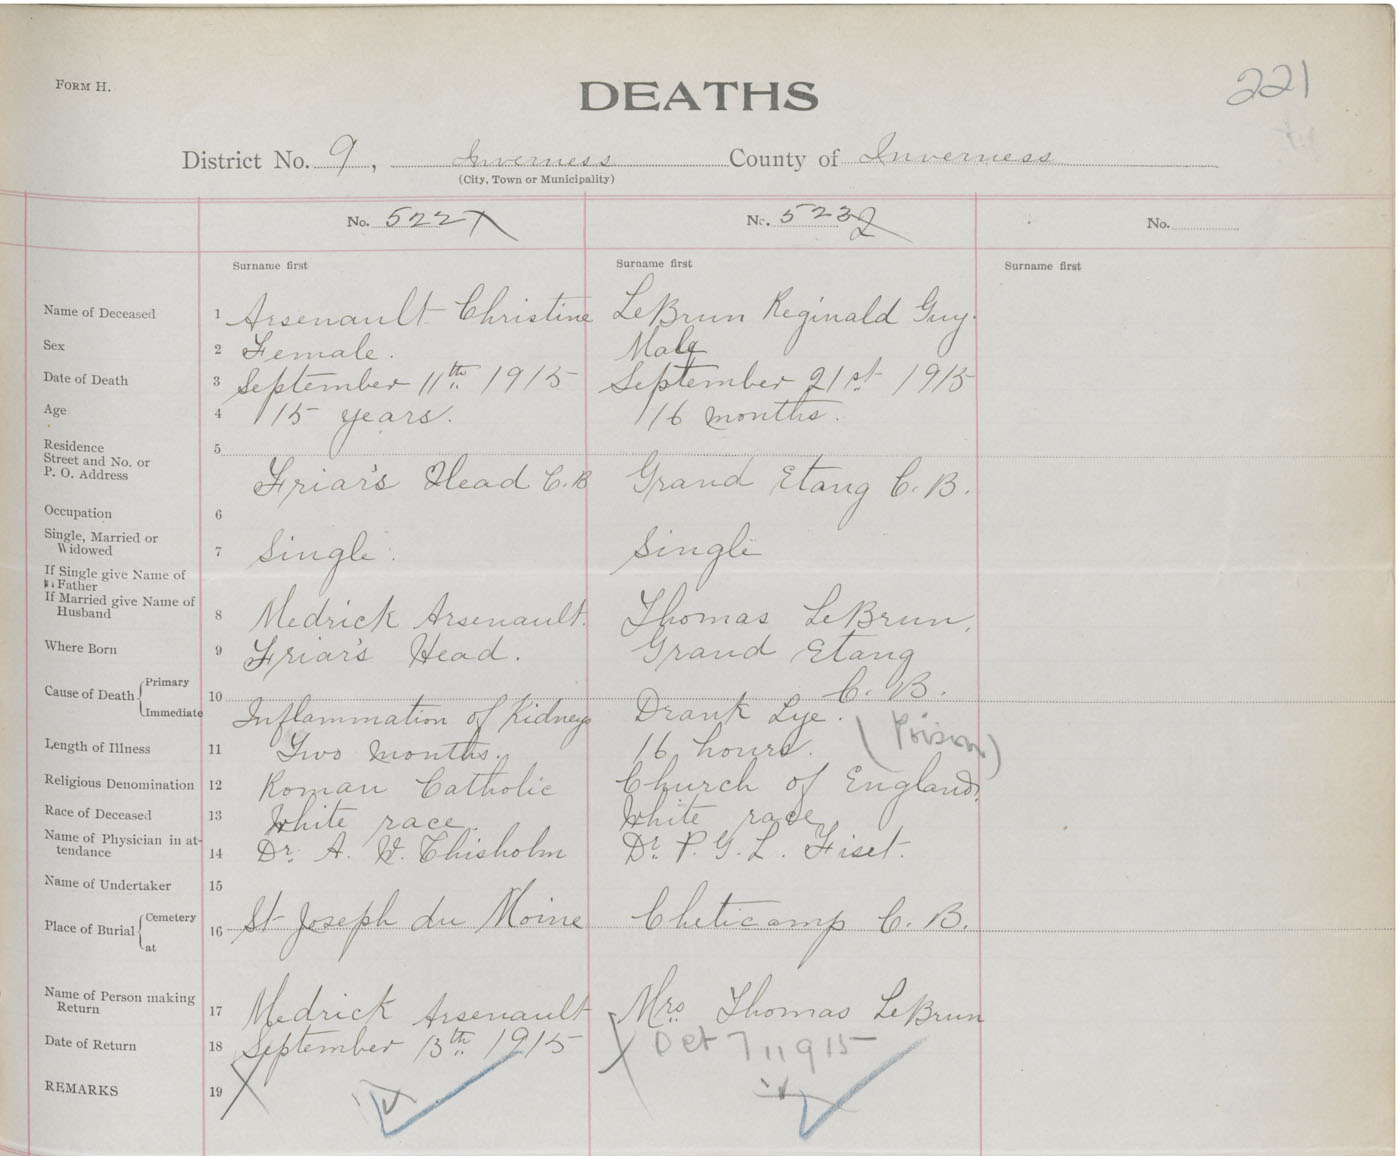 FORM H.
DEATHS
221
District No. 9, Inverness County of Inverness
(City, Town or Municipality)
No. 522 No. 523 2 No.
Surname first Surname first Surname first
Name of Deceased 1 Arsenault Christine LeBrun Reginald Guy.
Sex 2 Female. Male
Date of Death 3 September 11th 1915 September 21st 1915
Age 4 15 years. 16 months.
Residence 5
Street and No. or
P. O. Address Friar's Head C.B Grand Etang C. B.
Occupation 6
Single, Married or
Widowed 7 Single. Single
If Single give Name of
Father
If Married give Name of
Husband 8 Medrick Arsenault. Thomas LeBrun.
Where Born 9 Friar's Head. Grand Etang
C. B.
Cause of Death Primary 10
Immediate Inflammation of Kidneys Drank Lye. (Poison)
Length of Illness 11 Two months. 16 hours.
Religious Denomination 12 Roman Catholic Church of England.
Race of Deceased 13 White race. White race
Name of Physician in at-
tendance 14 Dr. A. W. Chisholm Dr. P. G. L. Fiset.
Name of Undertaker 15
Place of Burial Cemetery
at 16 St Joseph du Moine Cheticamp C. B.
Name of Person making
Return 17 Medrick Arsenault Mrs. Thomas LeBrun
Date of Return 18 September 13th 1915 Oct 7 1915
REMARKS 19